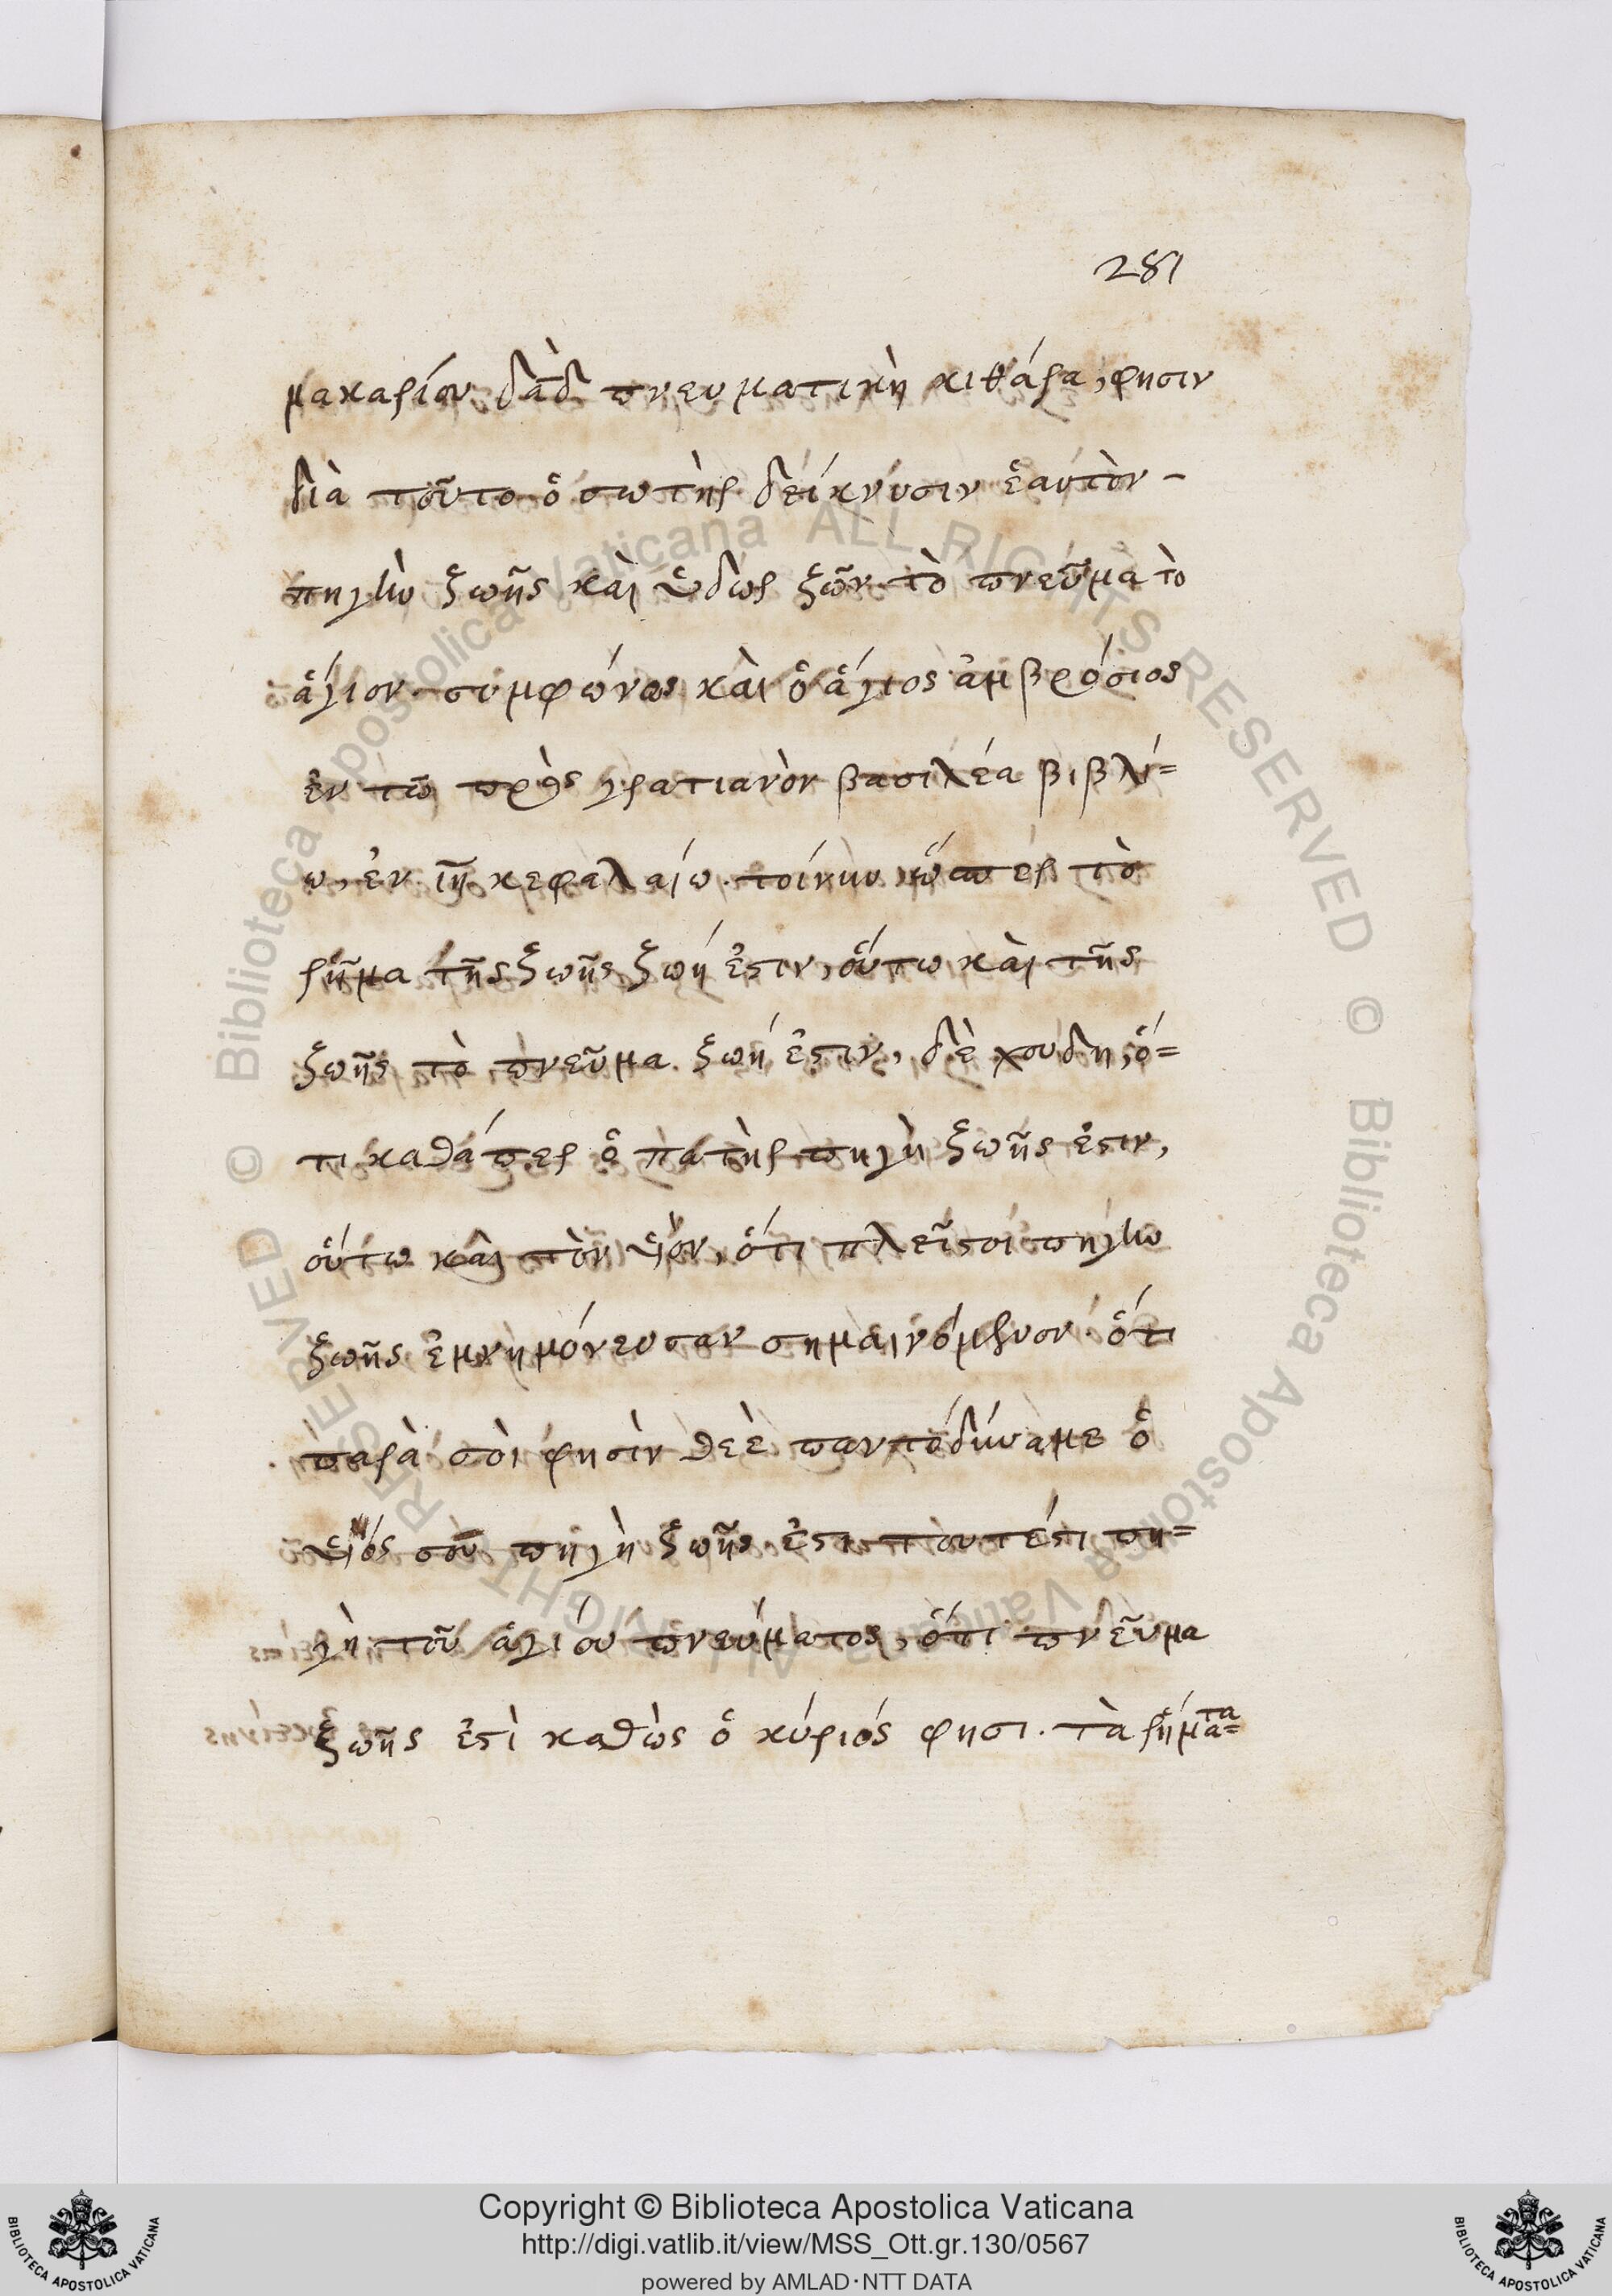 281
μακαρίου δᾱδ πνευματικὴ κιθάρα, φησιν
διὰ τοῦτο ὁ σωτὴρ δείκνυσιν ἑαυτὸν -
πηγὴν ζωῆς καὶ ὕδωρ ζῶν τὸ πνεῦμα τὸ
ἅγιον. συμφώνως καὶ ὁ ἅγιος ἀμβρόσιος
ἐν τῶ πρὸς γρατιανὸν βασιλέα βιβλί=
ω, ἐν ιη̄ κεφαλαίω. τοίνυν ὥσπερ τὸ
ρῆμα τῆς ζωῆς ζωή ἐστιν, οὕτω καὶ τῆς
ζωῆς τὸ πνεῦμα ζωή ἐστιν, δὲχου δὴ, ὅ=
τι καθάπερ ὁ πατὴρ πηγὴ ζωῆς ἐστιν,
οὕτω καὶ τὸν υἱὸν, ὅτι πλεῖστοι πηγὴν
ζωῆς ἐμνημόνευσαν σημαινόμενον. ὅτι
παρὰ σοὶ φησὶν θεὲ παντοδύναμε ὁ
υἱός σοῦ πηγὴ ζωῆς ἐστι τουτέστι πη=
γὴ τοῦ ἁγίου πνεύματος, ὅτι πνεῦμα
ζωῆς ἐστὶ καθὼς ὁ κύριός φησι. τὰ ρήματα=
Copyright © Biblioteca Apostolica Vaticana
http://digi.vatlib.it/view/MSS_Ott.gr.130/0567
powered by AMLAD·NTT DATA
BIBLIOTECA APOSTOLICA VATICANA
BIBLIOTECA APOSTOLICA VATICANA
© Biblioteca Apostolica Vaticana ALL RIGHTS RESERVED
© Biblioteca Apostolica Vaticana ALL RIGHTS RESERVED